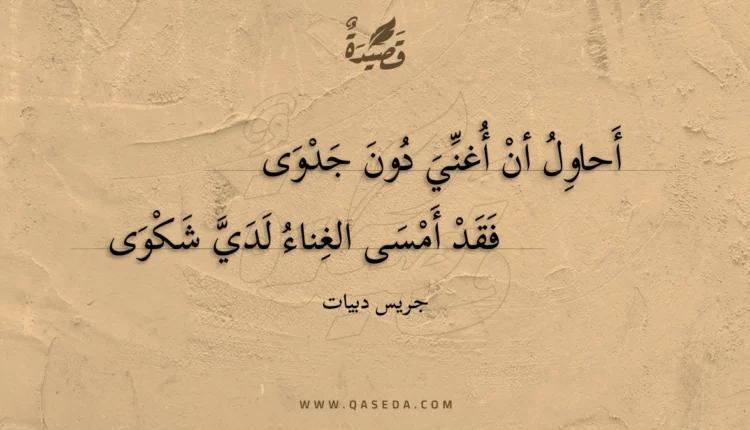 قَصِيدَةٌ
أَحاوِلُ أنْ أُغنِّيَ دُونَ جَدْوَى
فَقَدْ أَمْسَى الغِناءُ لَدَيَّ شَكْوَى
جريس دبيات
WWW.QASEDA.COM